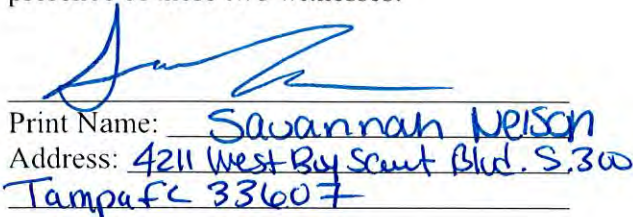 Print Name: Savannah Nelson
Address: 4211 West Boy Scout Blvd. S.300
Tampa FL 33607